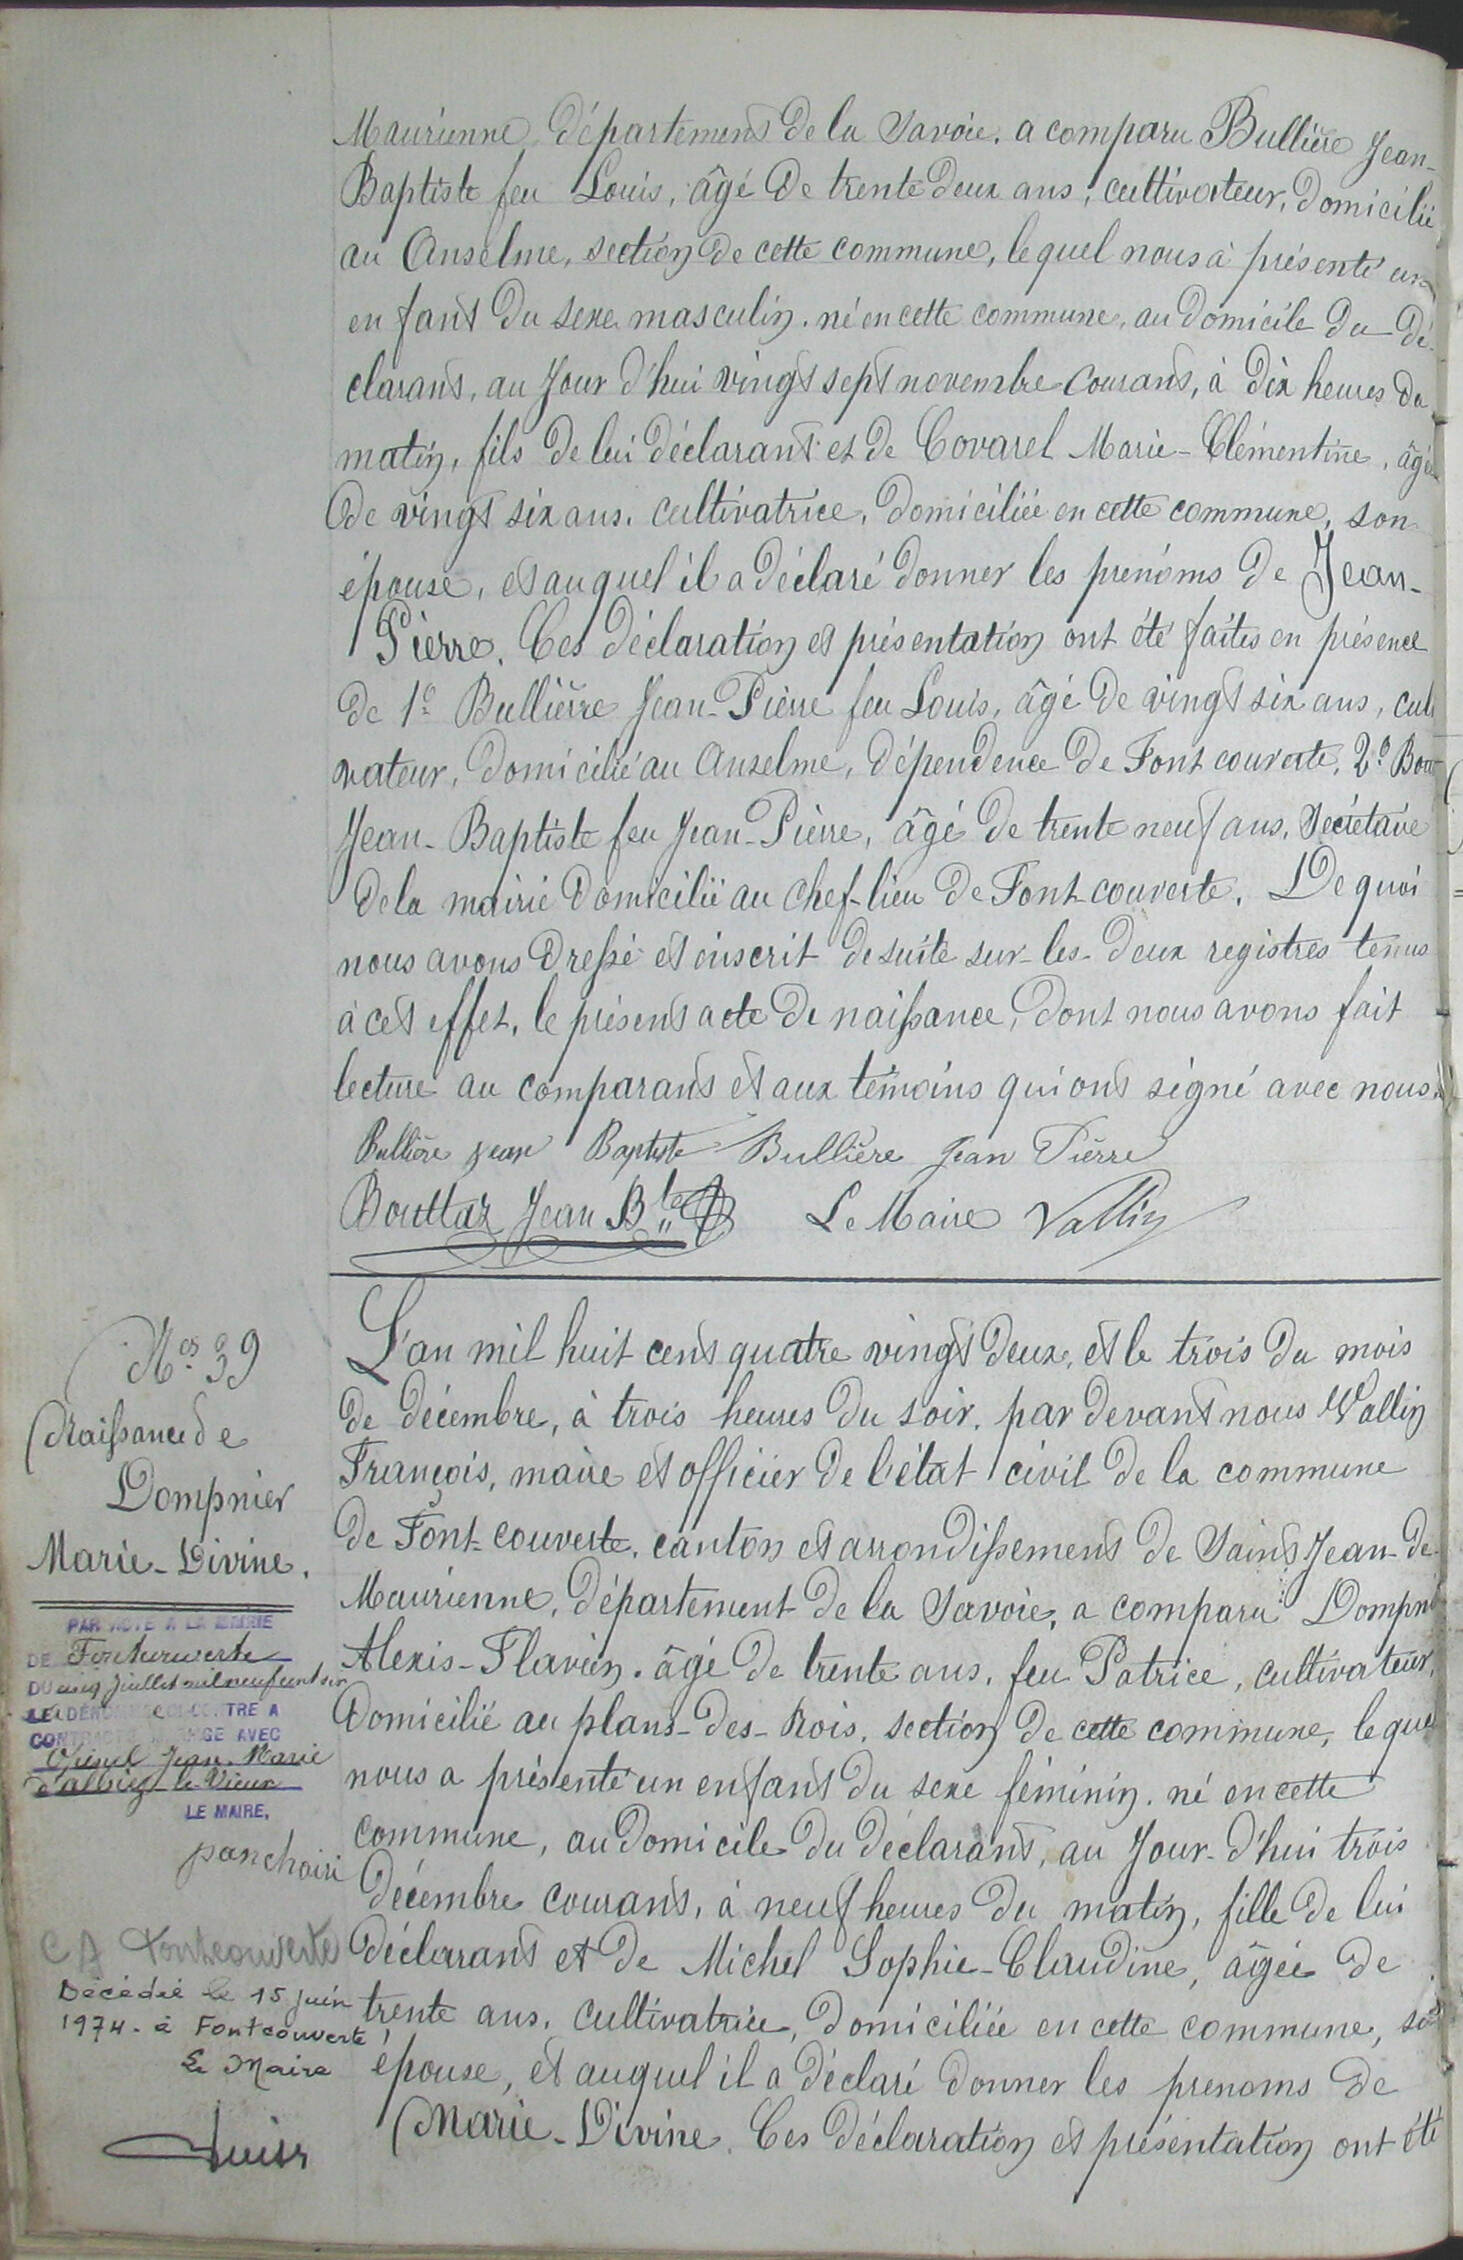 Maurienne, département de la Savoie. a comparu Bullière Jean-
Baptiste feu Louis, âgé de trente deux ans, cultivateur, domicilié
au Anselme, section de cette commune, lequel nous à présenté un
enfant du sexe masculin. né en cette commune, au domicile du dé-
clarant, au Jour d'hui vingt sept novembre courant, à dix heures du
matin, fils de lui déclarant et de Covarel Marie-Clémentine, âgée
de vingt six ans. cultivatrice, domiciliée en cette commune, son
épouse, et auquel il a déclaré donner les prénoms de Jean-
Pierre. Ces déclaration et présentation ont été faites en présence
de 1º Bullière Jean-Pierre feu Louis, âgé de vingt six ans, culti
vateur, domicilié au Anselme, dépendence de Font couverte, 2º
Jean-Baptiste feu Jean-Pierre, âgé de trente neuf ans, Secrétaire
de la mairie domicilié au chef-lieu de Font-couverte. De quoi
nous avons dressé et inscrit de suite sur-les-deux registres tenus
à cet effet, le présent acte de naissance, dont nous avons fait
lecture au comparant et aux témoins qui ont signé avec nous.
Bullière Jean Baptiste Bullière Jean Pierre
Bouttaz Jean Bte Le Maire Vallin
Nos 39
Naissance de
Dompnier
Marie-Divine.
PAR NOTE A LA MAIRIE
DE Fontcouverte
DU cinq Juillet mil neuf cent six
LE DÉNOMMÉ CI-CONTRE A
CONTRACTÉ MARIAGE AVEC
Jean-Marie
d'albiez le Vieux
LE MAIRE,
CA Fontcouverte
Décédée le 15 juin
1974. à Fontcouverte
Le Maire
L'an mil huit cent quatre vingt deux, et le trois du mois
de décembre, à trois heures du soir. par devant nous Vallin
François, maire et officier de l'état civil de la commune
de Font-couverte, canton et arrondissement de Saint Jean-de-
Maurienne, département de la Savoie, a comparu Dompni
Alexis-Flavien. âgé de trente ans, feu Patrice, cultivateur,
domicilié au plans-des-Rois, section de cette commune, lequel
nous a présenté un enfant du sexe féminin. né en cette
commune, au domicile du déclarant, au Jour-d'hui trois
décembre courant, à neuf heures du matin, fille de lui
déclarant et de Michel Sophie-Claudine, âgée de
trente ans, cultivatrice, domiciliée en cette commune, son
épouse, et auquel il a déclaré donner les prenoms de
Marie-Divine. Ces déclaration et présentation ont été